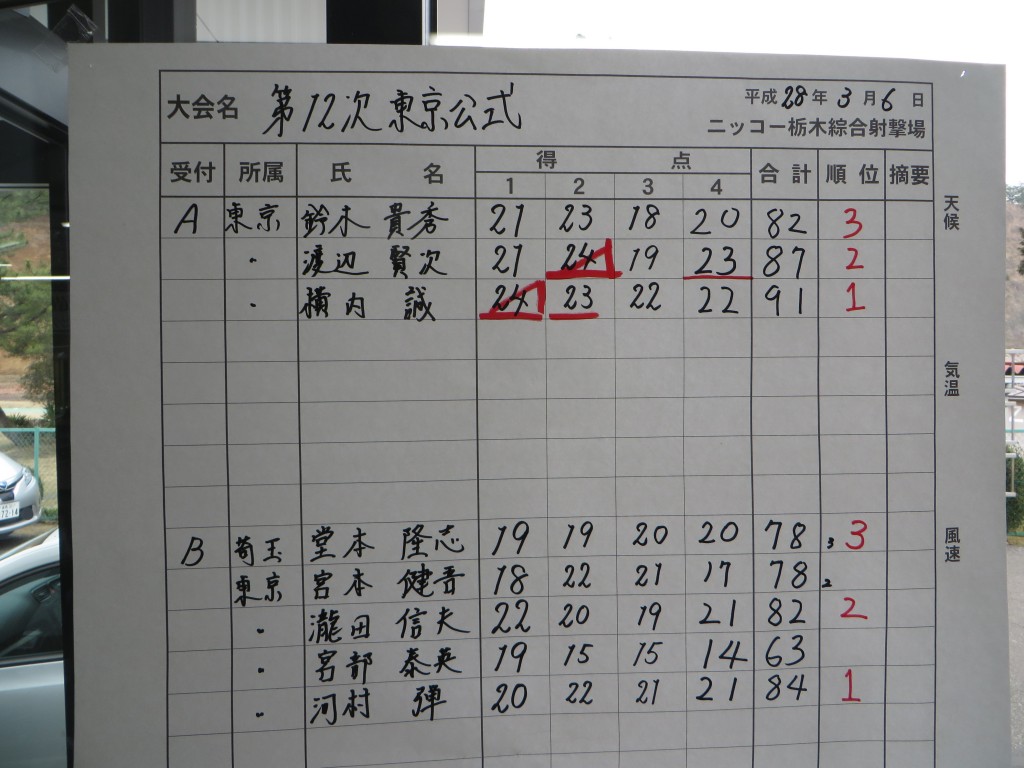 大会名 第12次 東京公式 平成28年3月6日
ニッコー栃木綜合射撃場
受付 所属 氏名 得点 合計 順位 摘要
1 2 3 4
A 東京 鈴木 貴秀 21 23 18 20 82 3
〃 渡辺 賢次 21 24 19 23 87 2
〃 横内 誠 24 23 22 22 91 1
B 埼玉 堂本 隆志 19 19 20 20 78 3 3
東京 宮本 健晋 18 22 21 17 78 2
〃 瀧田 信夫 22 20 19 21 82 2
〃 宮部 泰英 19 15 15 14 63
〃 河村 弾 20 22 21 21 84 1
天候
気温
風速
72-14